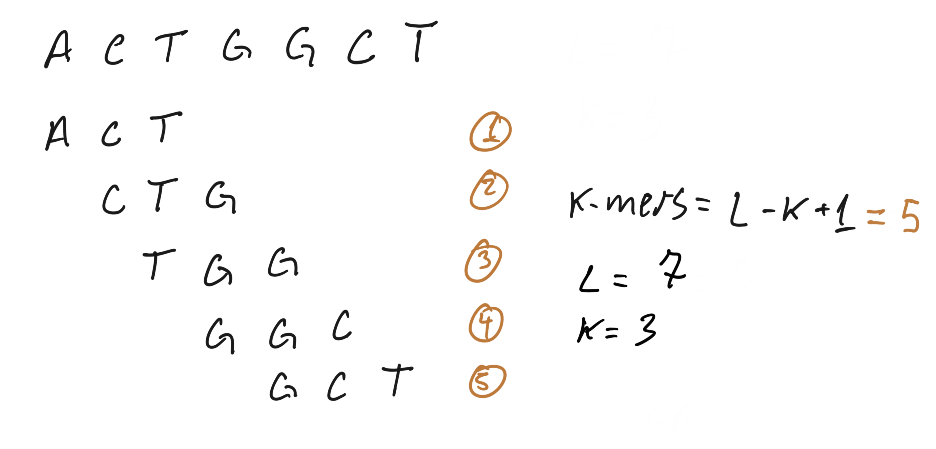 A C T G G C T
A C T ①
C T G ②
T G G ③
G G C ④
G C T ⑤
K-mers = L - K + 1 = 5
L = 7
K = 3